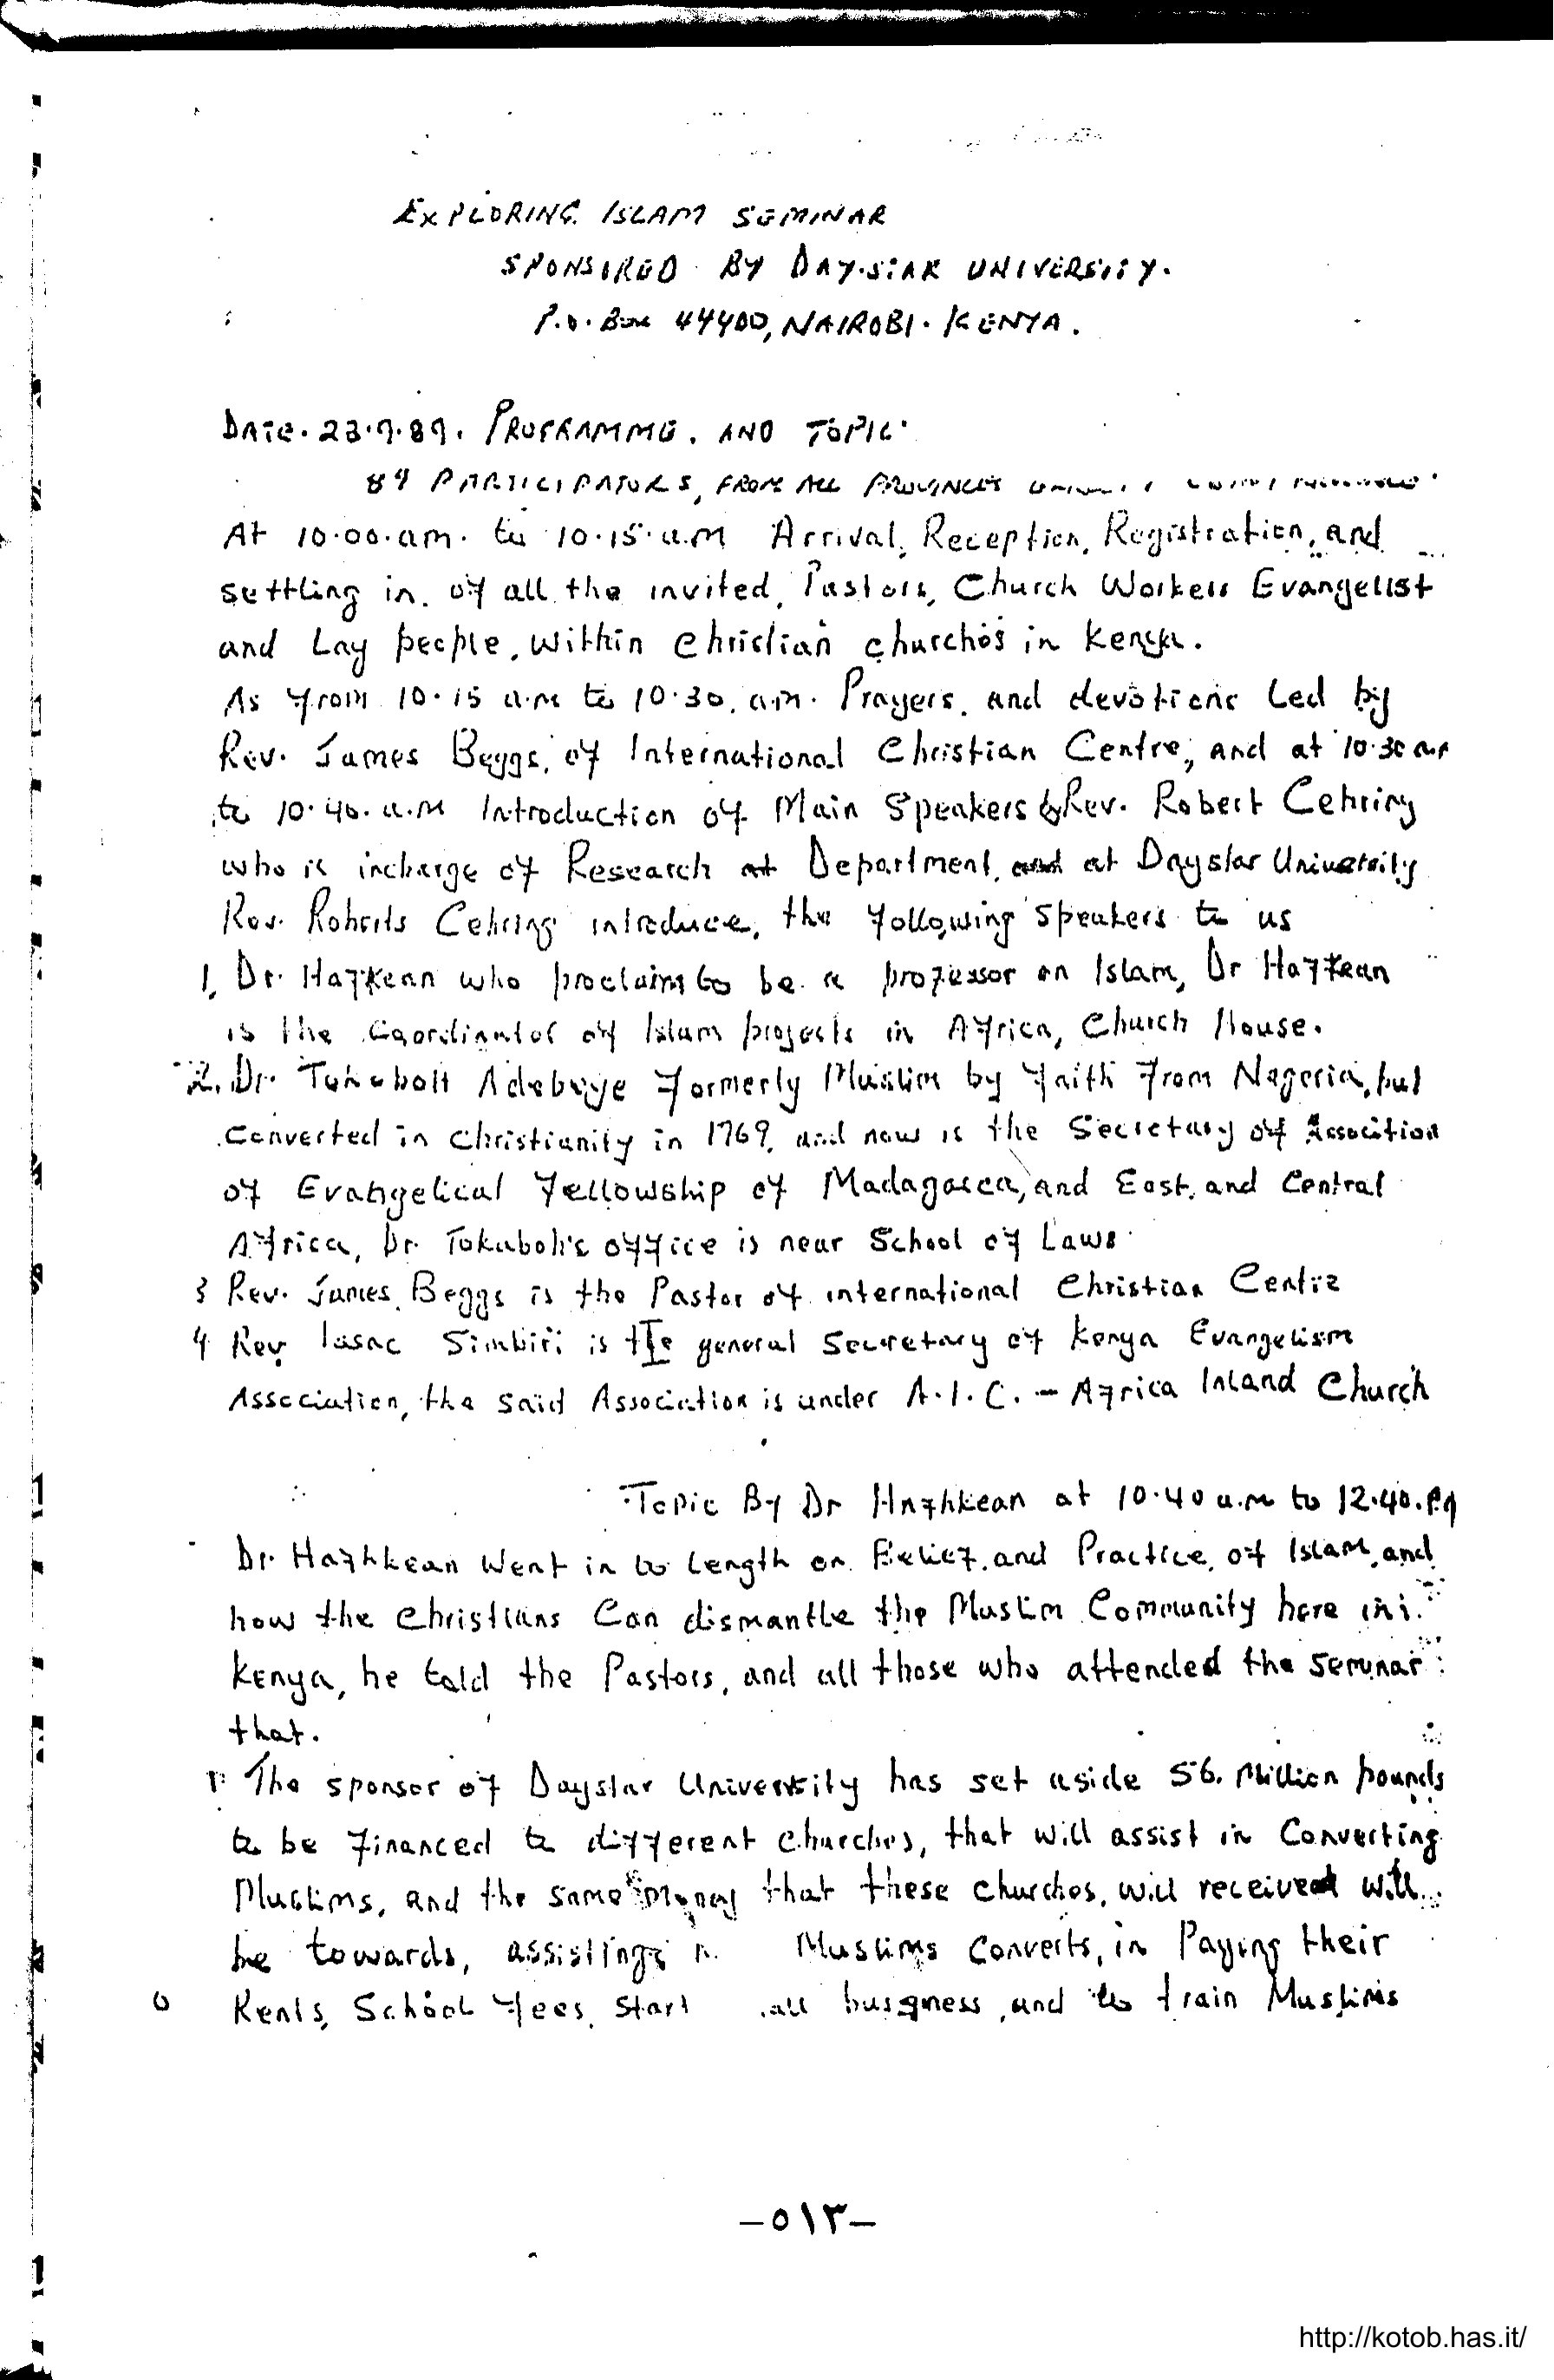 EXPLORING ISLAM SEMINAR
SPONSIRED BY DAY.STAR UNIVERSITY.
P.O. Box 44400, NAIROBI. KENYA.
DATE. 23.9.89. PROGRAMME. AND TOPIC
89 PARTICIPATORS, FROM ALL PROVINCES
At 10.00.am. to 10.15.a.m Arrival, Reception, Registration, and
settling in. of all the invited, Pastors, Church Workers Evangelist
and Lay people, within Christian churches in Kenya.
As from 10.15 a.m to 10.30. a.m. Prayers. and devotions led by
Rev. James Beggs, of International Christian Centre, and at 10.30 am
to 10.40. a.m Introduction of Main Speakers by Rev. Robert Cehring
who is incharge of Research at Department, and at Daystar University
Rev. Roberts Cehring introduce, the following speakers to us
1, Dr. Hafkean who proclaim to be a professor on Islam, Dr Hafkean
is the Coordinator of Islam projects in Africa, Church House.
2. Dr. Tokuboh Adeboye formerly Muslim by faith from Nageria, but
converted in Christianity in 1969, and now is the Secretary of Assocition
of Evangelical Fellowship of Madagasca, and East, and Central
Africa, Dr. Tokuboh's office is near School of Laws
3 Rev. James Beggs is the Pastor of international Christian Centre
4 Rev. Iasac Simbiri is the general Secretary of Kenya Evangelism
Association, the said Association is under A.I.C. - Africa Inland Church
Topic By Dr Hafhkean at 10.40 a.m to 12.40. P.M
Dr. Hafhkean went in to length on Belief. and Practice, of Islam, and
how the Christians Can dismantle the Muslim Community here in
Kenya, he told the Pastors, and all those who attended the seminar
that.
1. The sponsor of Daystar University has set aside 56. Million pounds
to be financed to different churches, that will assist in Converting
Muslims, and the same money that these churches, will received will
be towards, assisting Muslims Converts, in Paying their
Rents, School fees, start all busgness, and to train Muslims
-٥١٣-
http://kotob.has.it/